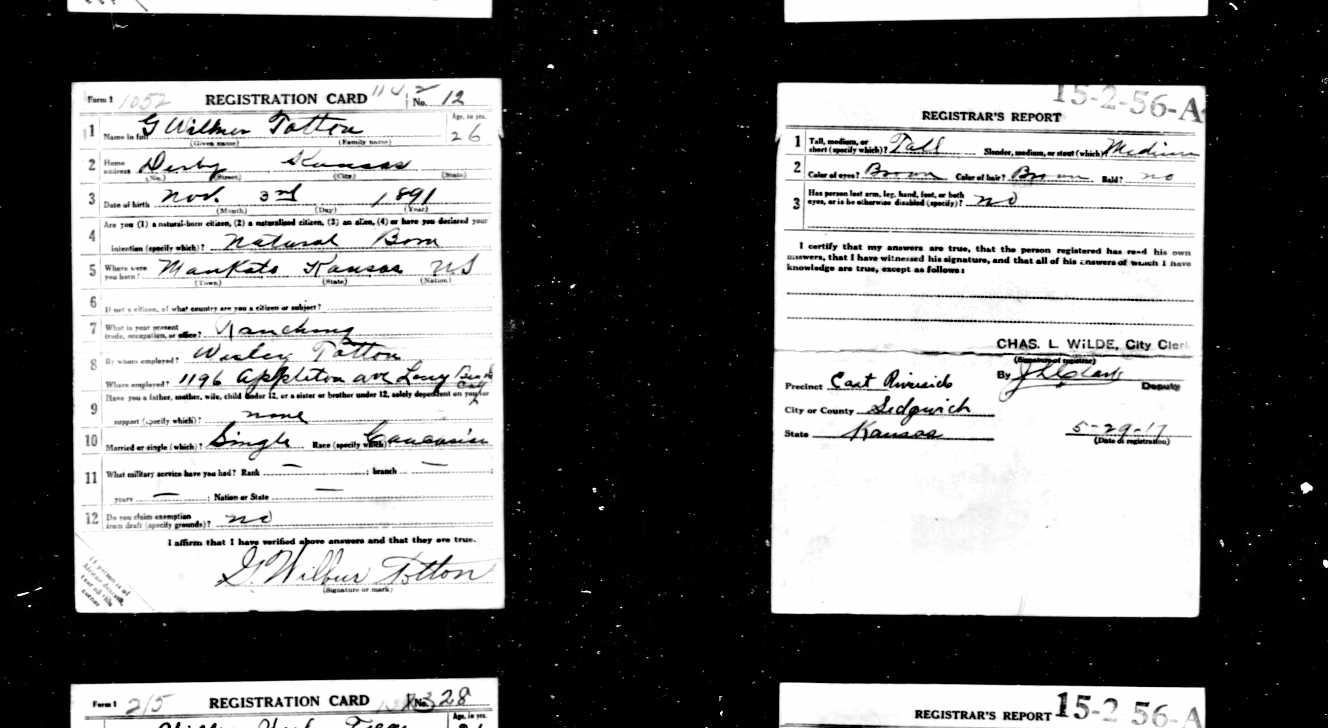 Form 1 1052 REGISTRATION CARD No. 12
1 Name in full G Wilbur Totton Age, in yrs. 26
(Given name) (Family name)
2 Home address Derby Kansas
(No.) (Street) (City) (State)
3 Date of birth Nov. 3rd 1891
(Month) (Day) (Year)
Are you (1) a natural-born citizen, (2) a naturalized citizen, (3) an alien, (4) or have you declared your
4 intention (specify which)? Natural Born
5 Where were you born? Mankato Kansas US
(Town) (State) (Nation)
6 If not a citizen, of what country are you a citizen or subject?
7 What is your present trade, occupation, or office? Ranching
8 By whom employed? Wesley Totton
Where employed? 1196 Appleton ave Long Beach Calf
Have you a father, mother, wife, child under 12, or a sister or brother under 12, solely dependent on you for
9 support (specify which)? none
10 Married or single (which)? Single Race (specify which)? Caucasian
11 What military service have you had? Rank — ; branch — ;
years — ; Nation or State —
12 Do you claim exemption from draft (specify grounds)? no
I affirm that I have verified above answers and that they are true.
G Wilbur Totton
(Signature or mark)
If person is of
African descent,
tear off this
corner
15-2-56-A
REGISTRAR'S REPORT
1 Tall, medium, or short (specify which)? Tall Slender, medium, or stout (which)? Medium
2 Color of eyes? Brown Color of hair? Brown Bald? no
3 Has person lost arm, leg, hand, foot, or both eyes, or is he otherwise disabled (specify)? no
I certify that my answers are true, that the person registered has read his own
answers, that I have witnessed his signature, and that all of his answers of which I have
knowledge are true, except as follows:
CHAS. L. WILDE, City Clerk
(Signature of registrar)
By J L Clark Deputy
Precinct East Riverside
City or County Sedgwick
State Kansas 5-29-17
(Date of registration)
Form 1 215 REGISTRATION CARD No. 328
Age, in yrs.
REGISTRAR'S REPORT 15-2 56-A